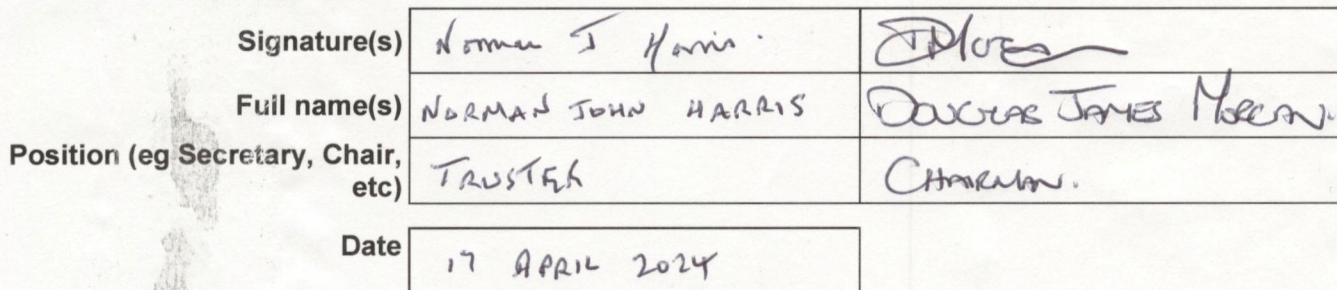 Signature(s) Norman J Harris. DJMorgan
Full name(s) NORMAN JOHN HARRIS DOUGLAS JAMES MORGAN.
Position (eg Secretary, Chair, etc) TRUSTEE CHAIRMAN.
Date 17 APRIL 2024